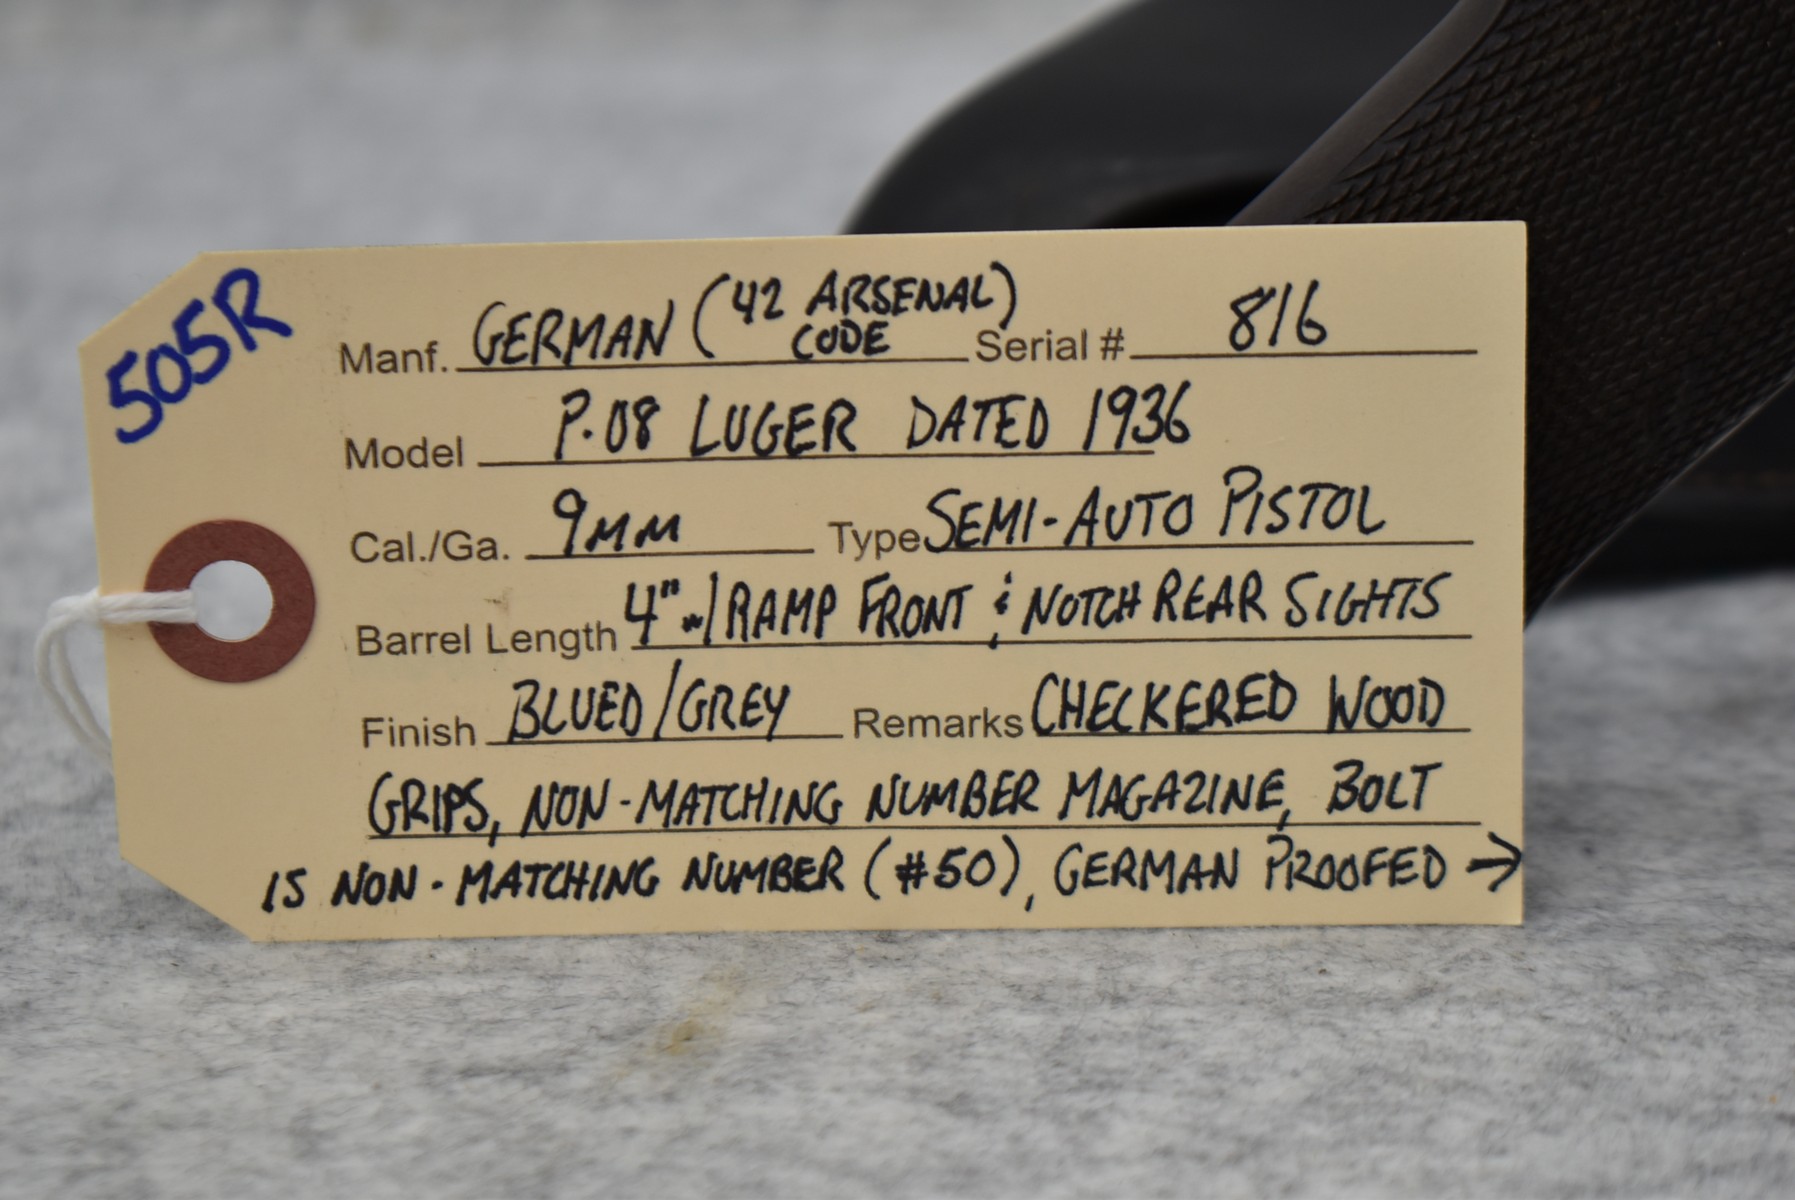 505R
Manf. GERMAN (42 ARSENAL CODE) Serial # 816
Model P.08 LUGER DATED 1936
Cal./Ga. 9MM Type SEMI-AUTO PISTOL
Barrel Length 4" w/ RAMP FRONT & NOTCH REAR SIGHTS
Finish BLUED/GREY Remarks CHECKERED WOOD
GRIPS, NON-MATCHING NUMBER MAGAZINE, BOLT
IS NON-MATCHING NUMBER (#50), GERMAN PROOFED →